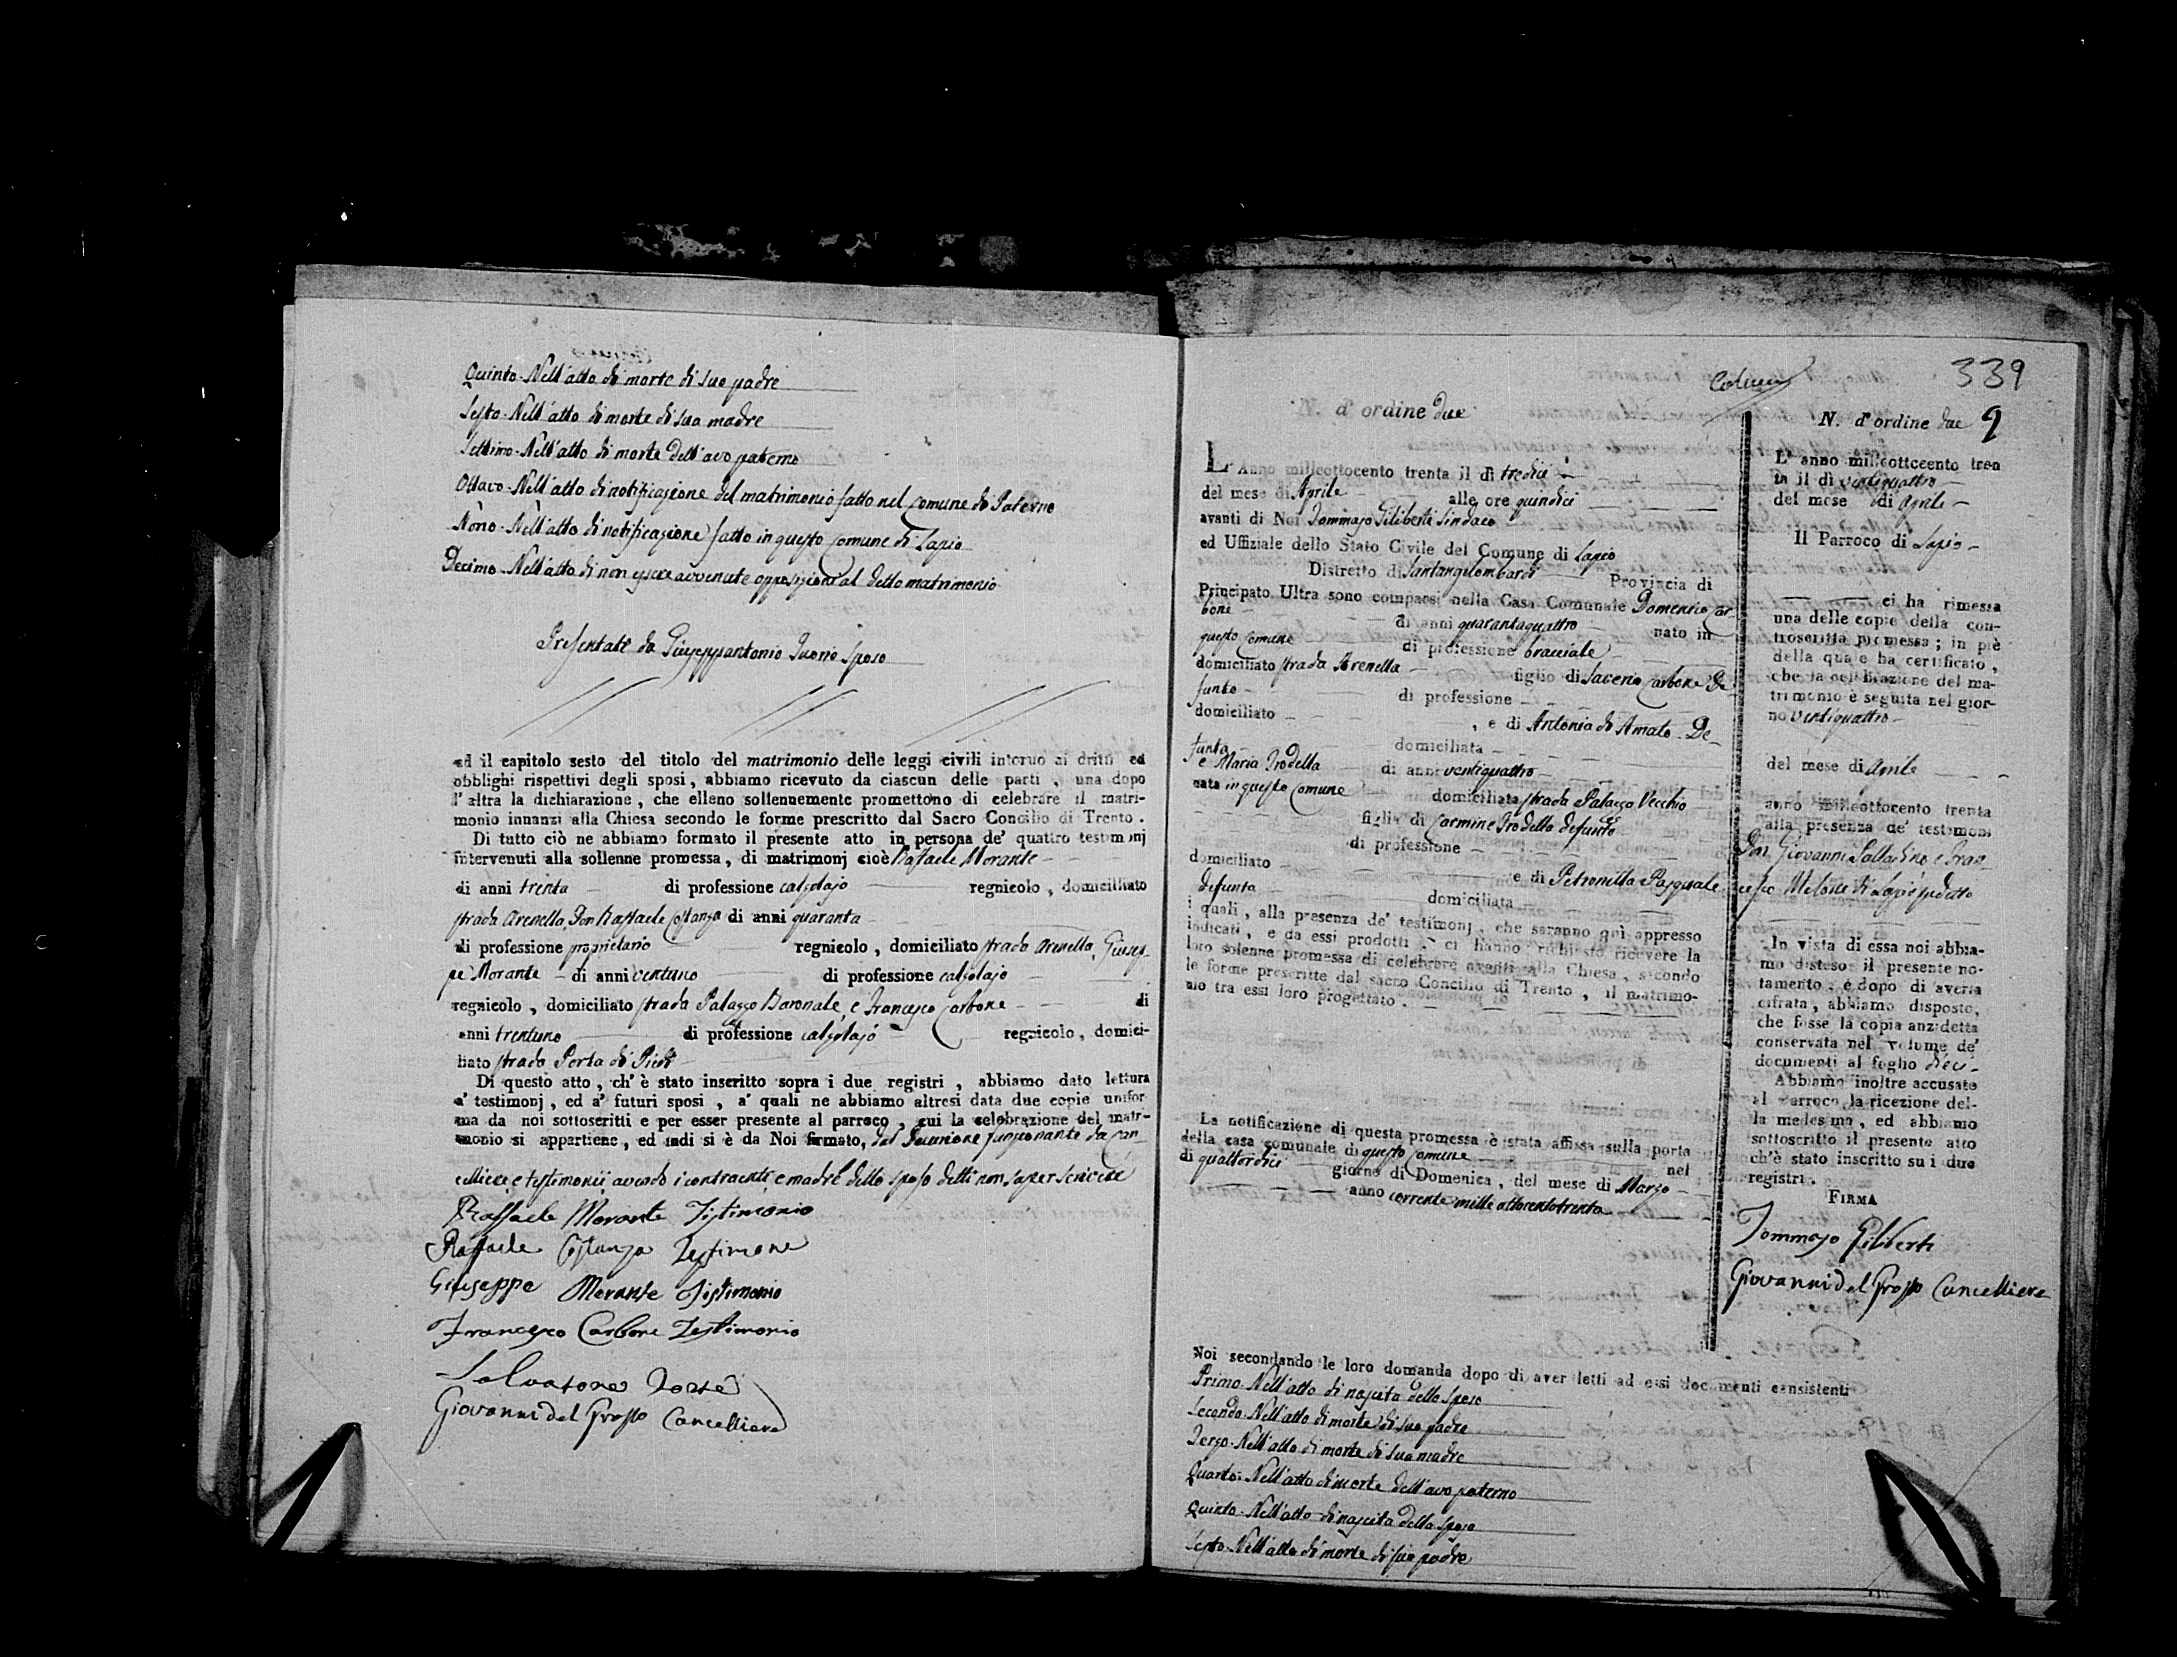 Quinto - Nell'atto di morte di suo padre
Sesto - Nell'atto di morte di sua madre
Settimo - Nell'atto di morte dell'avo paterno
Ottavo - Nell'atto di notificazione del matrimonio fatto nel Comune di Paterno
Nono - Nell'atto di notificazione fatto in questo Comune di Lapio
Decimo - Nell'atto di non essere avvenute opposizione al detto matrimonio
Presentate da Giuseppantonio sposo
ed il capitolo sesto del titolo del matrimonio delle leggi civili intorno ai dritti ed
obblighi rispettivi degli sposi, abbiamo ricevuto da ciascun delle parti, una dopo
l'altra la dichiarazione, che elleno sollennemente promettono di celebrare il matri-
monio innanzi alla Chiesa secondo le forme prescritto dal Sacro Concilio di Trento.
Di tutto ciò ne abbiamo formato il presente atto in persona de' quattro testimonj
intervenuti alla sollenne promessa, di matrimonj cioè Rafaele Morante
di anni trenta di professione calzolajo regnicolo, domiciliato
strada Arenella, Don Raffaele Costanza di anni quaranta
di professione proprietario regnicolo, domiciliato strada Arenella, Giusep-
pe Morante di anni ventuno di professione calzolajo
regnicolo, domiciliato strada Palazzo Baronale, e Francesco Carbone di
anni trentuno di professione calzolajo regnicolo, domici-
liato strada Porta di Piedi
Di questo atto, ch'è stato inscritto sopra i due registri, abbiamo dato lettura
a' testimonj, ed a' futuri sposi, a' quali ne abbiamo altresì data due copie unifor
ma da noi sottoscritti e per esser presente al parroco, cui la celebrazione del matr-
monio si appartiene, ed indi si è da Noi firmato, dal Decurione funzionante da Can-
celliere e testimonii avendo i contraenti e madre dello sposo detti non saper scrivere
Raffaele Morante Testimonio
Raffaele Costanza Testimone
Giuseppe Morante Testimonio
Francesco Carbone Testimonio
Salvatore
Giovanni del Grosso Cancelliere
339
N. d'ordine due
L'Anno milleottocento trenta il dì tredici
del mese di Aprile alle ore quindici
avanti di Noi Tommaso Giliberti Sindaco
ed Uffiziale dello Stato Civile del Comune di Lapio
Distretto di Santangelombardi Provincia di
Principato Ultra sono comparsi nella Casa Comunale Domenico Car-
bone di anni quarantaquattro nato in
questo Comune di professione bracciale
domiciliato strada Arenella figlio di Saverio Carbone De-
funto di professione
domiciliato , e di Antonia di Amato De-
funta domiciliata
e Maria Trodella di anni ventiquattro
nata in questo Comune domiciliata strada Palazzo Vecchio
figlia di Carmine Trodella defunto
di professione
domiciliato e di Petronilla Pasquale
defunta domiciliata
i quali, alla presenza de' testimonj, che saranno quì appresso
indicati, e da essi prodotti, ci hanno richiesto ricevere la
loro solenne promessa di celebrare avanti alla Chiesa, secondo
le forme prescritte dal sacro Concilio di Trento, il matrimo-
nio tra essi loro progettato.
La notificazione di questa promessa è stata affissa sulla porta
della casa comunale di questo Comune nel
di quattordici giorno di Domenica, del mese di Marzo
anno corrente mille ottocentotrenta
Noi secondando le loro domanda dopo di aver letti ad essi documenti consistenti
Primo - Nell'atto di nascita dello sposo
Secondo - Nell'atto di morte di suo padre
Terzo - Nell'atto di morte di sua madre
Quarto - Nell'atto di morte dell'avo paterno
Quinto - Nell'atto di nascita della sposa
Sesto - Nell'atto di morte di suo padre
N. d'ordine due 2
L'anno milleottocento tren
ta il dì ventiquattro
del mese di Aprile
Il Parroco di Lapio
ci ha rimessa
una delle copie della con-
troscritta promessa; in piè
della quale ha certificato,
che la celebrazione del ma-
trimonio è seguita nel gior-
no ventiquattro
del mese di Aprile
anno milleottocento trenta
alla presenza de' testimoni
Don Giovanni Palladino e Fran-
cesco Melone di Lapio
In vista di essa noi abbia-
mo disteso il presente no-
tamento, e dopo di averla
cifrata, abbiamo disposto,
che fosse la copia anzidetta
conservata nel volume de'
documenti al foglio dieci
Abbiamo inoltre accusato
al Parroco la ricezione del-
la medesima, ed abbiamo
sottoscritto il presente atto
ch'è stato inscritto su i due
registri.
FIRMA
Tommaso Giliberti
Giovanni del Grosso Cancelliere